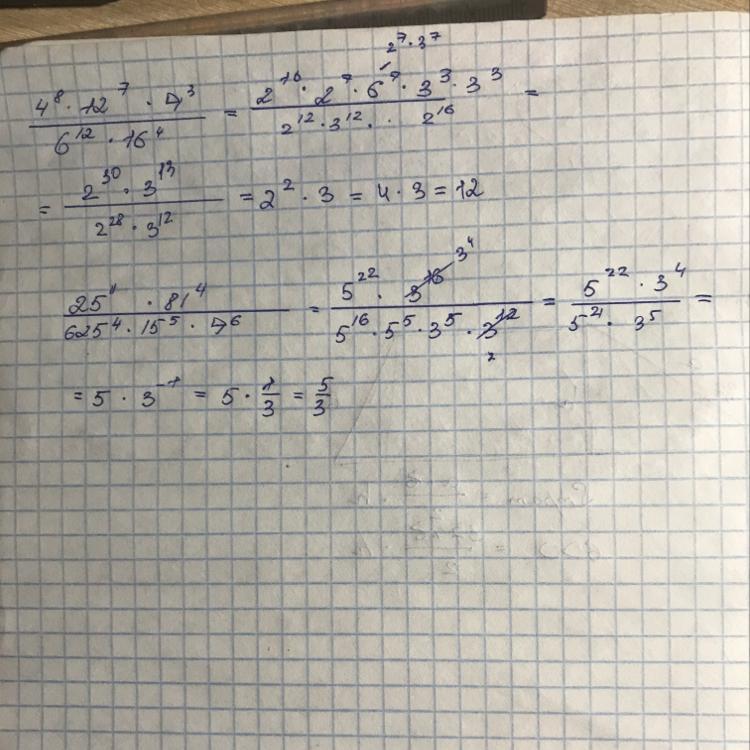 2⁷·3⁷
4⁸·12⁷·9³ / 6¹²·16⁴ = 2¹⁶·2⁷·6⁷·3³·3³ / 2¹²·3¹²·2¹⁶ =
= 2³⁰·3¹³ / 2²⁸·3¹² = 2²·3 = 4·3 = 12
25¹¹·81⁴ / 625⁴·15⁵·9⁶ = 5²²·3¹⁶ 3⁴ / 5¹⁶·5⁵·3⁵·3¹² = 5²²·3⁴ / 5²¹·3⁵ =
= 5·3⁻¹ = 5·1/3 = 5/3